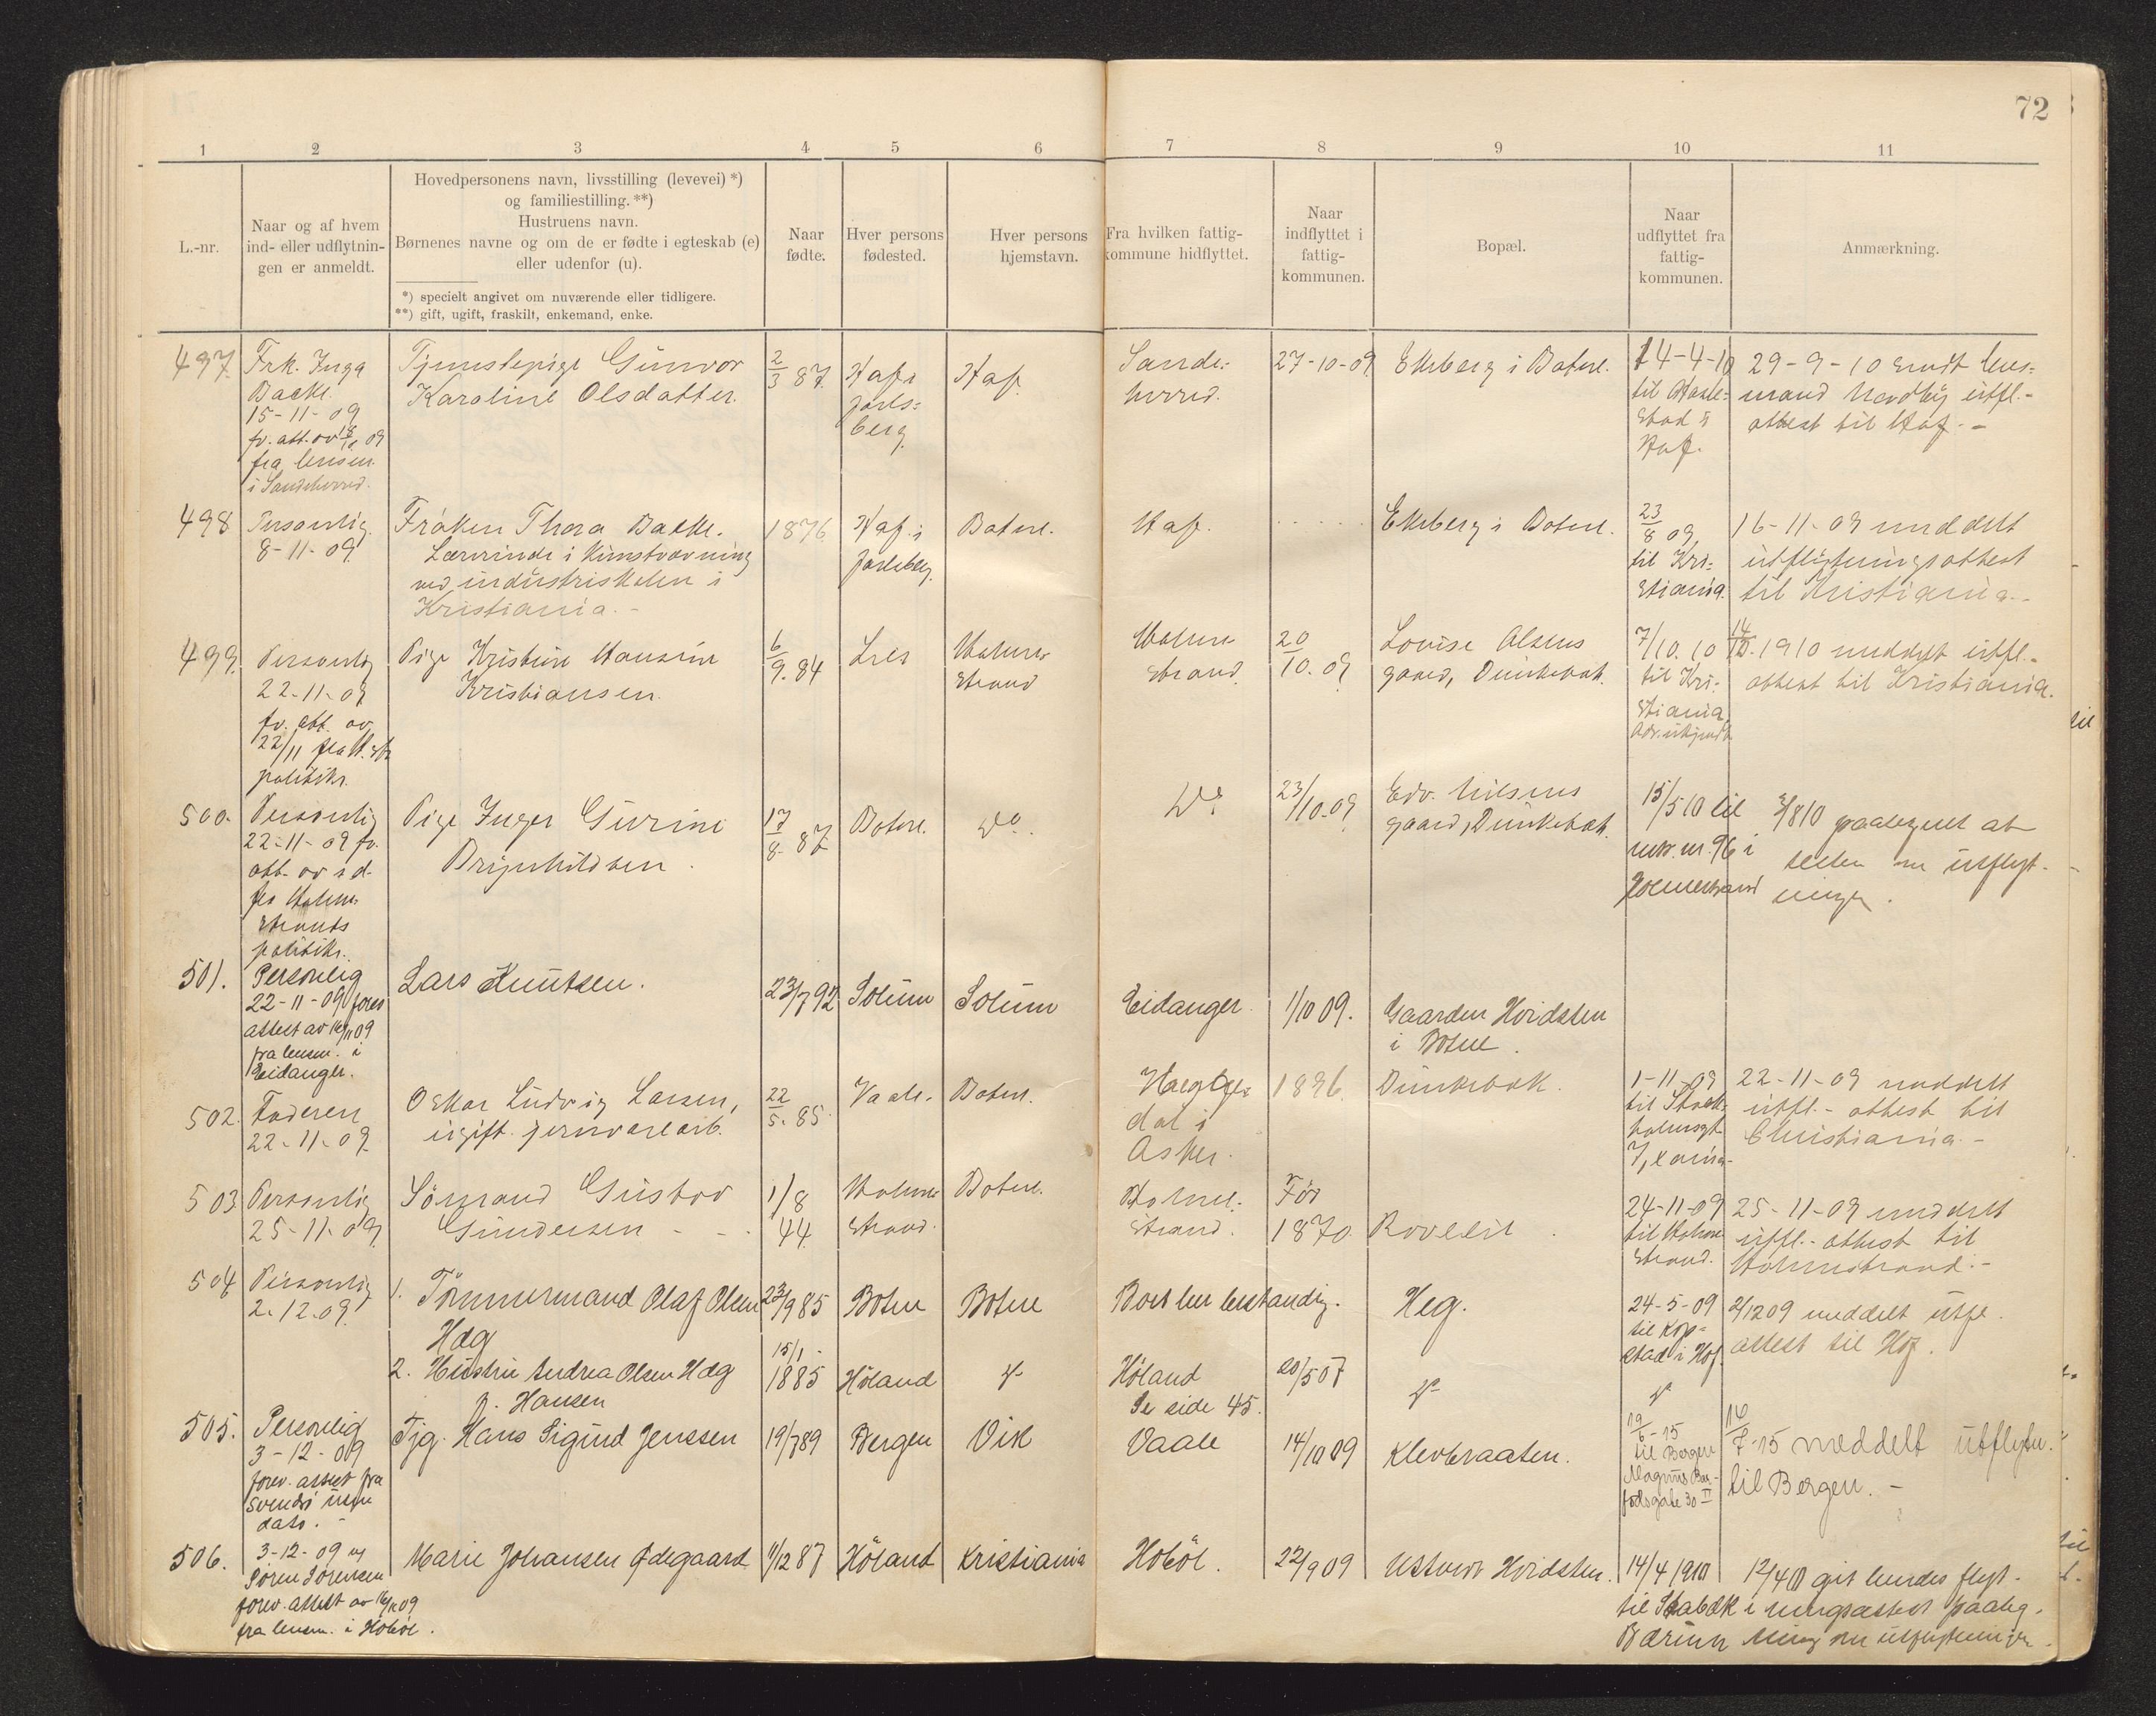 72
1 2 3 4 5 6 7 8 9 10 11
L.-nr.
Naar og af hvem
ind- eller udflytnin-
gen er anmeldt.
Hovedpersonens navn, livsstilling (levevei) *)
og familiestilling. **)
Hustruens navn.
Børnenes navne og om de er fødte i egteskab (e)
eller udenfor (u).
*) specielt angivet om nuværende eller tidligere.
**) gift, ugift, fraskilt, enkemand, enke.
Naar
fødte.
Hver persons
fødested.
Hver persons
hjemstavn.
Fra hvilken fattig-
kommune hidflyttet.
Naar
indflyttet i
fattig-
kommunen.
Bopæl.
Naar
udflyttet fra
fattig-
kommunen.
Anmærkning.
497.
Frk. Inga
Bakke.
15-11-09
fv. att. av 18/10 09
fra lensm.
i Sandeherred.
Tjenestepige Gunvor
Karoline Olsdatter.
2/3 87.
Hof i
Jarls-
berg.
Hof.
Sande-
herred.
27-10-09.
Ekeberg i Botne.
14-4-10
til Hasle-
stad i
Hof.
29-9-10 sendt lens-
mand Nordby utfl.-
attest til Hof. -
498
Personlig
8-11-09.
Frøken Thora Bakke.
Lærerinde i kunstvævning
ved industriskolen i
Kristiania. -
1876.
Hof i
Jarlsberg.
Botne.
Hof.
. . . . .
Ekeberg i Botne.
23/8 09,
til Kri-
stiania.
16-11-09 meddelt
utflytningsattest
til Kristiania. -
499.
Personlig
22-11-09
fv. att. av
22/11 fra H.str.
politik.
Pige Kristine Hansine
Kristiansen.
6/9. 84
Holme-
strand
Holme-
strand.
20/10. 09
Lovise Olsens
gaard, Dunkebæk.
7/10. 10
til Kri-
stiania.
Adr. ukjendt
14/12. 1910 meddelt utfl.-
attest til Kristiania.
500.
Personlig
22-11-09 fv.
att. av s. d.
fra Holme-
strands
politik.
Pige Inger Gurine
Brynhildsen.
17/8. 87
Botne.
Do.
Do.
23/10. 09
Edv. Nilsens
gaard, Dunkebæk.
15/5 10 til
matr. nr. 96 i
Holmestrand
3/8 10 paategnet at-
testen om utflyt-
ningen.
501.
Personlig
22-11-09 forev.
attest av 16/11 09
fra lensm. i
Eidanger.
Lars Knutsen.
23/7 92
Solum
Solum
Eidanger.
1/10 09.
Gaarden Hvidsten
i Botne.
502.
Faderen
22-11-09.
Oskar Ludvig Larsen,
ugift. jernvarearb.
22/5. 85.
Vaale.
Botne.
dal i
Asker.
1896.
Dunkebæk.
1-11-09
til Stock-
holmsgt.
7, Xania.
22-11-09 meddelt
utfl.- attest til
Christiania. -
503.
Personlig
25-11-09.
Sømand Gustav
Gundersen - -
1/8
44.
Holme-
strand.
Botne.
Holme-
strand.
Før
1870.
Rovelil.
24-11-09
til Holme-
strand.
25-11-09 meddelt
utfl.- attest til
Holmestrand. -
504
Personlig
2. 12. 09.
1. Tømmermand Olaf Olsen
Hæg
23/9 85
Botne
Botne
Boet her bestandig.
Heg.
24-5-09
til Kop-
stad i Hof.
2/12 09 meddelt utfl.
attest til Hof.
2. Hustru Andrea Olsen Hæg
f. Hansen
15/1 -
1885
Høland
Høland
Se side 45.
20/5 07
505.
Personlig
3-12-09
forev. attest fra
uten
dato. -
Tjg. Hans Sigurd Jenssen
19/7 89
Bergen
Vik
Vaale
14/10 09
Klevbraaten.
19/6-15
til Bergen
Magnus Bar-
fodsgate 30 II
16/7-15 meddelt utflytn.
til Bergen. -
506.
3-12-09 av
Søren Sørensen
forev. attest av 16/11 09
fra lensm. i Hobøl.
Marie Johansen Ødegaard
11/12 87
Høland
Kristiania
Hobøl.
22/9 09
Hvidsten.
14/4 1910
til Stabæk i
Bærum
12/4 10 git hendes flyt-
ningsattest paateg-
ning om utflytningen.